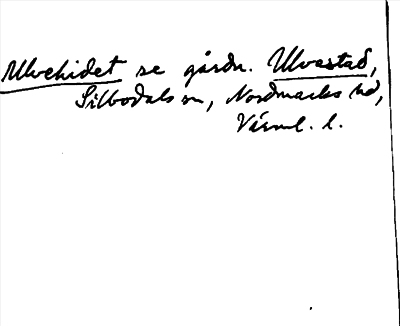 Ulvehidet se gårdn. Ulvastad,
Silbodals sn, Nordmarks hd,
Värml. l.